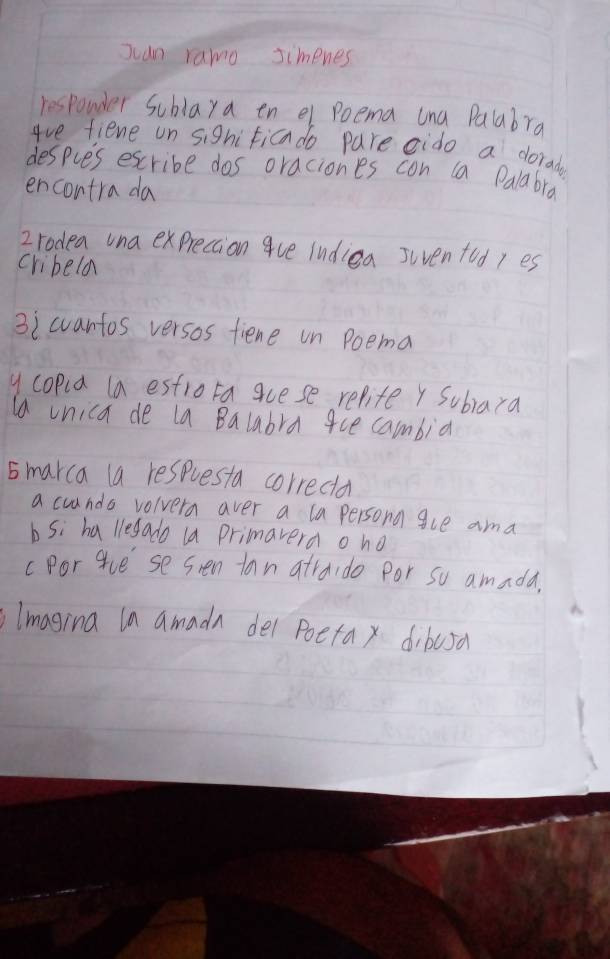 Juan ramo Jimenes
responder Sublaya en el Poema una Palabra
que tiene un significado parecido a dorado
despúes escribe dos oraciones con la Palabra
encontra da
2 rodea una expreccion que indica Juventud y es
cribela
3¿ cuantos versos tiene un Poema
4 copia la estrofa que se repite y subraya
la unica de la Balabra que cambia
5 marca la respuesta correcta
a cuando volvera aver a la Persona que ama
b si ha llegado la Primavera o no
c Por qué se sien tan atraido Por su amada.
Imagina la amada del Poeta y dibuja